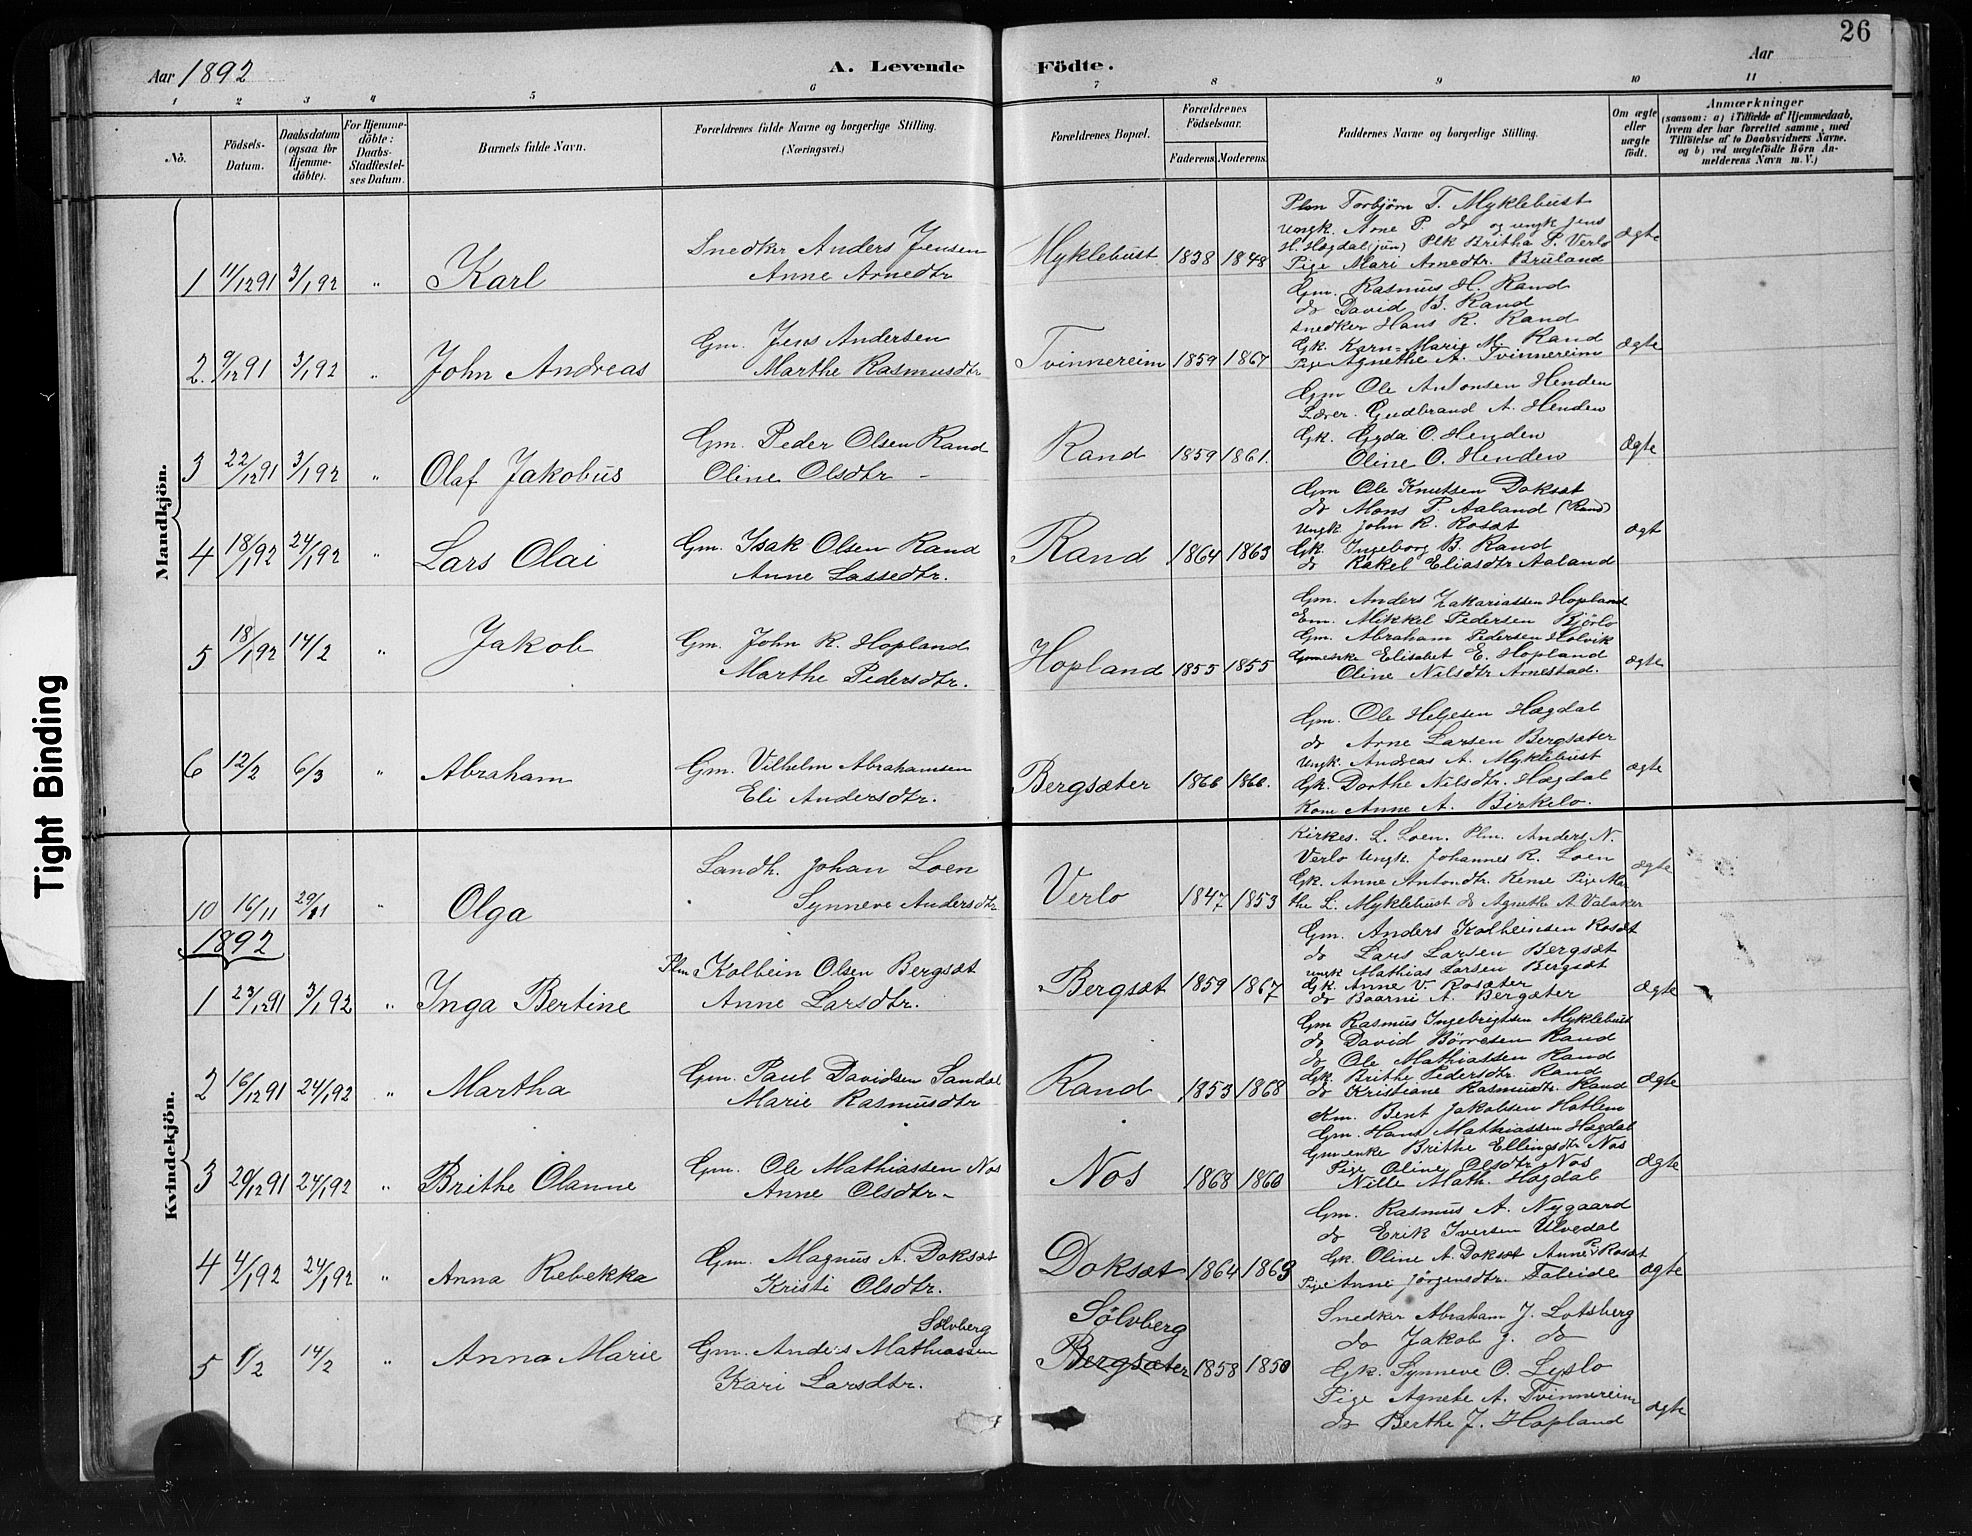 26
Aar 1892 A. Levende Födte. Aar
1 2 3 4 5 6 7 8 9 10 11
No.
Födsels-Datum.
Daabsdatum (ogsaa for Hjemmedöbte).
For Hjemmedöbte: Daabs-Stadfæstelses Datum.
Barnets fulde Navn.
Forældrenes fulde Navne og borgerlige Stilling.
(Næringsvei.)
Forældrenes Bopæl.
Forældrenes Födselsaar.
Faderens. Moderens.
Faddernes Navne og borgerlige Stilling.
Om ægte eller uægte födt.
Anmærkninger
(saasom: a) i Tilfælde af Hjemmedaab,
hvem der har forrettet samme, med
Tilföielse af to Daabsvidners Navne.
og b) ved uægtefödte Börn An-
melderens Navn m. V.)
Mandkjön.
1 11/12 91 3/1 92 " Karl
Snedker Anders Jensen
Anne Arnedtr
Myklebust 1838 1848
Plm Torbjørn T. Myklebust
Ungk. Arne P. do og ungk Jens
H. Hægdal (jun) Plk Britha P. Verlo
Pige Mari Arnedtr. Bruland
ægte
2. 9/12 91 3/1 92 " John Andreas
Gm. Jens Andersen
Marthe Rasmusdtr
Tvinnereim 1859 1867
Gm. Rasmus H. Rand
do David B. Rand
Snedker Hans R. Rand
Gk. Karn-Marie M. Rand
Pige Agnethe A. Tvinnereim
ægte
3 22/12 91 3/1 92 " Olaf Jakobus
Gm. Peder Olsen Rand
Oline Olsdtr -
Rand 1859 1861.
Gm Ole Antonsen Henden
Lærer. Gudbrand A. Henden
Gk. Gyda O. Henden
Oline O. Henden
ægte
4 18/1 92 24/1 92 " Lars Olai
Gm. Isak Olsen Rand
Anne Lassedtr.
Rand 1864 1863
Gm Ole Knutsen Doksæt
do Mons P. Aaland (Rand)
Ungk John R. Rosæt
Gk. Ingeborg B. Rand
do Rakel Eliasdtr Aaland
ægt
5 18/1 92 14/2 " Jakob
Gm. John R. Hopland
Marthe Pedersdtr.
Hopland 1855 1855
Gm. Anders Zakariassen Hopland
Em. Mikkel Pedersen Bjørlo
Gm. Abraham Pedersen Holvik
Gmenke Elisabet E. Hopland
Oline Nilsdtr Arnestad.
ægte
6 12/2 6/3 " Abraham
Gm. Vilhelm Abrahamsen
Eli Andersdtr.
Bergsæter 1866 1866.
Gm. Ole Heljesen Hægdal
do Arne Larsen Bergsæter
Ungk. Andreas A. Myklebust
Gk. Dorthe Nilsdtr. Hægdal
Kone Anne A. Birkelo.
ægte
Kvindekjön.
10 16/11 29/11 " Olga
Landh. Johan Loen
Synneve Andersdtr.
Verlo 1847 1853
Kirkes. L. Loen. Plm. Anders N.
Verlo Ungk. Johannes R. Loen
Gk. Anne Antondtr. Reme Pige Mar
the L. Myklebust do Agnethe A. Valaker
ægte
1892
1 23/12 91 3/1 92 " Inga Bertine
Plm Kolbein Olsen Bergsæt
Anne Larsdtr.
Bergsæt 1859 1867
Gm. Anders Kolbeinsen Rosæt
do Lars Larsen Bergsæt
ungk Mathias Larsen Bergsæt
Gk. Anne V. Rosæter
do Baarni A. Bergæter
ægte
2 16/12 91 24/1 92 " Martha
Gm. Paul Davidsen Sandal
Marie Rasmusdtr
Rand 1853 1868
Gm Rasmus Ingebrigtsen Myklebust
do David Börresen Rand
do Ole Mathiassen Rand
Gk. Brithe Pedersdtr. Rand
do Kristiane Rasmusdtr. Rand
ægte
3 20/12 91 24/1 92 " Brithe Olanne
Gm. Ole Mathiassen Nos
Anne Olsdtr-
Nos 1868 1860
Km. Bent Jakobsen Hatlem
Gm. Hans Mathiassen Hægdal
Gmenke Brithe Ellingsdtr Nos
Pige Oline Olsdtr Nos
Nille Math. Hægdal
ægte
4 4/1 92 24/1 92 " Anna Rebekka
Gm. Magnus A. Doksæt
Kristi Olsdtr.
Doksæt 1864 1863
Gm. Rasmus A. Nygaard
do Erik Iversen Ulvedal
Gk Oline A. Doksæt Anne P. Rosæt
Pige Anne Jörgensdtr. Faleide
ægte
5 1/2 14/2 " Anna Marie
Sølvberg
Gm. Anders Mathiassen
Kari Larsdtr.
Sølvberg
Bergsæter 1858 1850
Snedker Abraham J. Lotsberg
do Jakob J. do
Gk. Synneve O. Lyslo
Pige Agnete A. Tvinnereim
do Berthe J. Hopland
ægte
Tight Binding